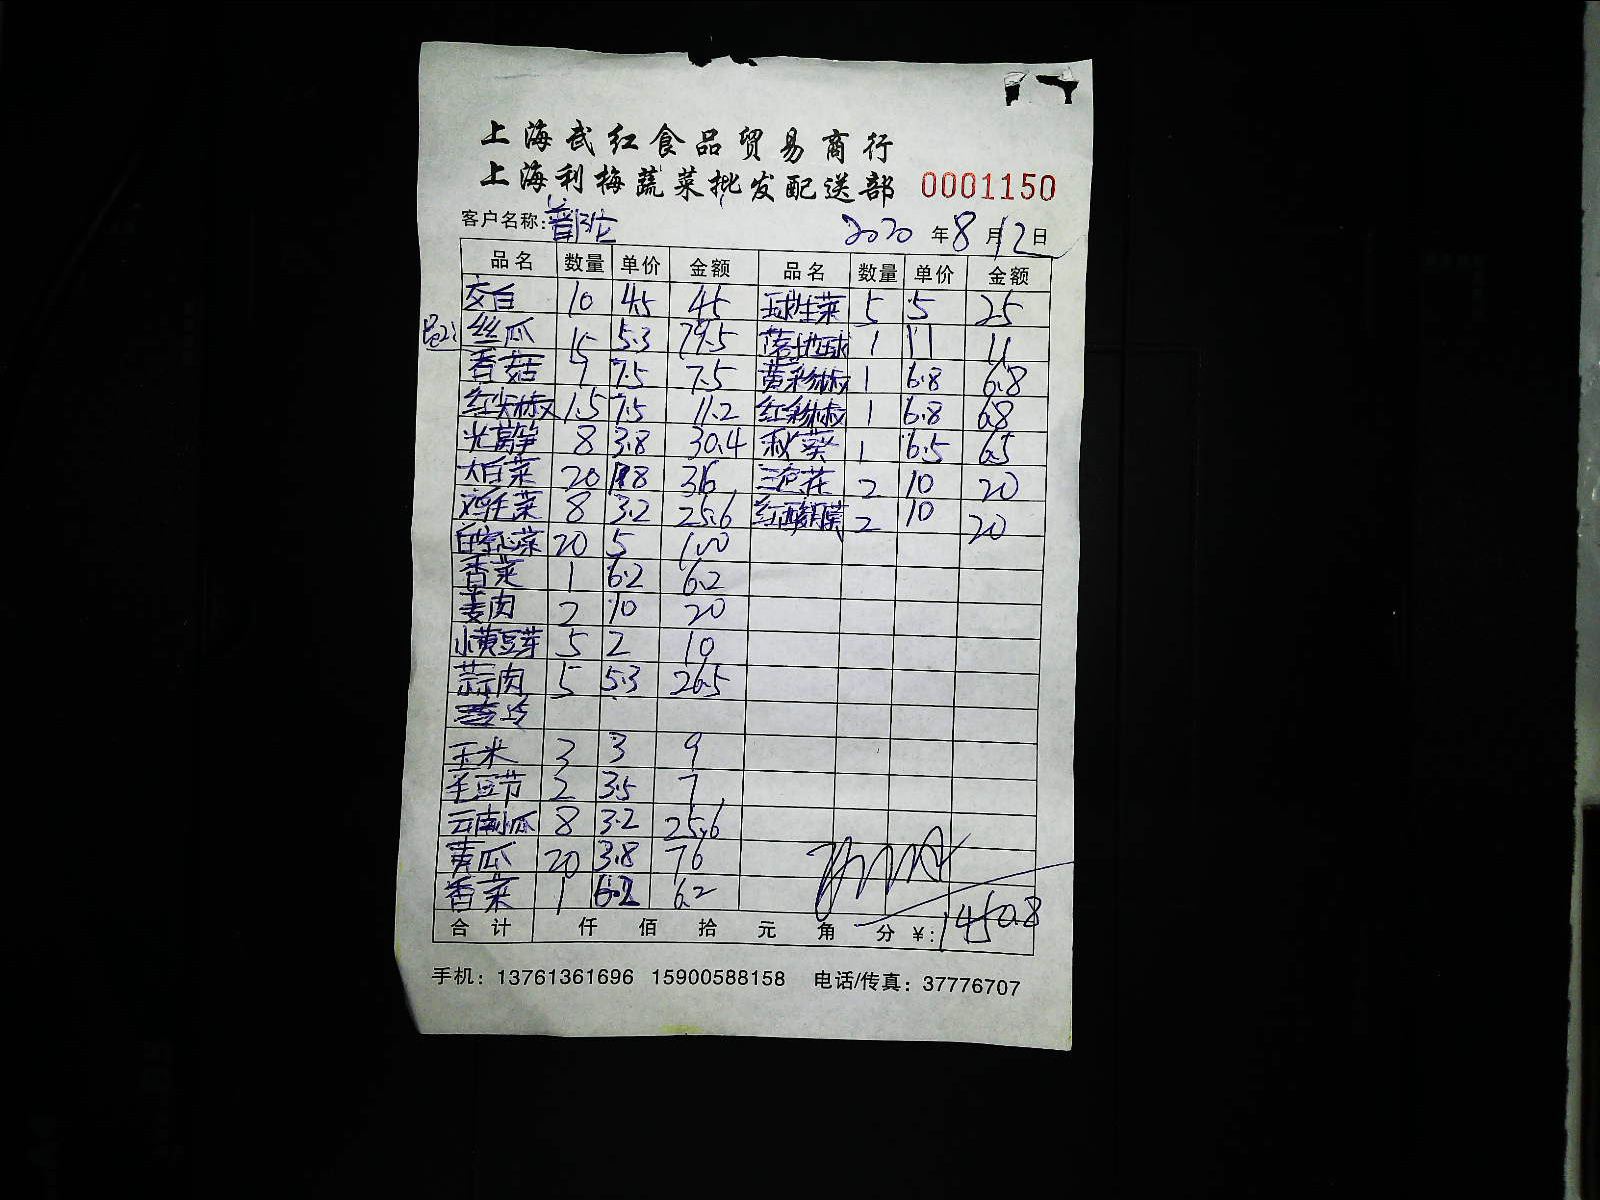 上海武红食品贸易商行
上海利梅蔬菜批发配送部 0001150
客户名称: 2020年8月12日
品名 数量 单价 金额 品名 数量 单价 金额
交白 10 4.5 45 球生菜 5 5 25
丝瓜 15 5.3 79.5 落地球 1 11 11
香菇 1 7.5 7.5 黄彩椒 1 6.8 6.8
红尖椒 1.5 7.5 11.2 红彩椒 1 6.8 6.8
光莴笋 8 3.8 30.4 秋葵 1 6.5 6.5
大白菜 20 1.8 36 三色花 2 10 20
鸡毛菜 8 3.2 25.6 2 10 20
白空心菜 20 5 100
香菜 1 6.2 6.2
姜肉 2 10 20
小黄豆芽 5 2 10
蒜肉 5 5.3 26.5
玉米 3 3 9
毛豆节 2 3.5 7
云南小瓜 8 3.2 25.6
黄瓜 20 3.8 76
香菜 1 6.2 6.2
合计 仟 佰 拾 元 角 分 ¥: 1450.8
手机：13761361696 15900588158 电话/传真：37776707